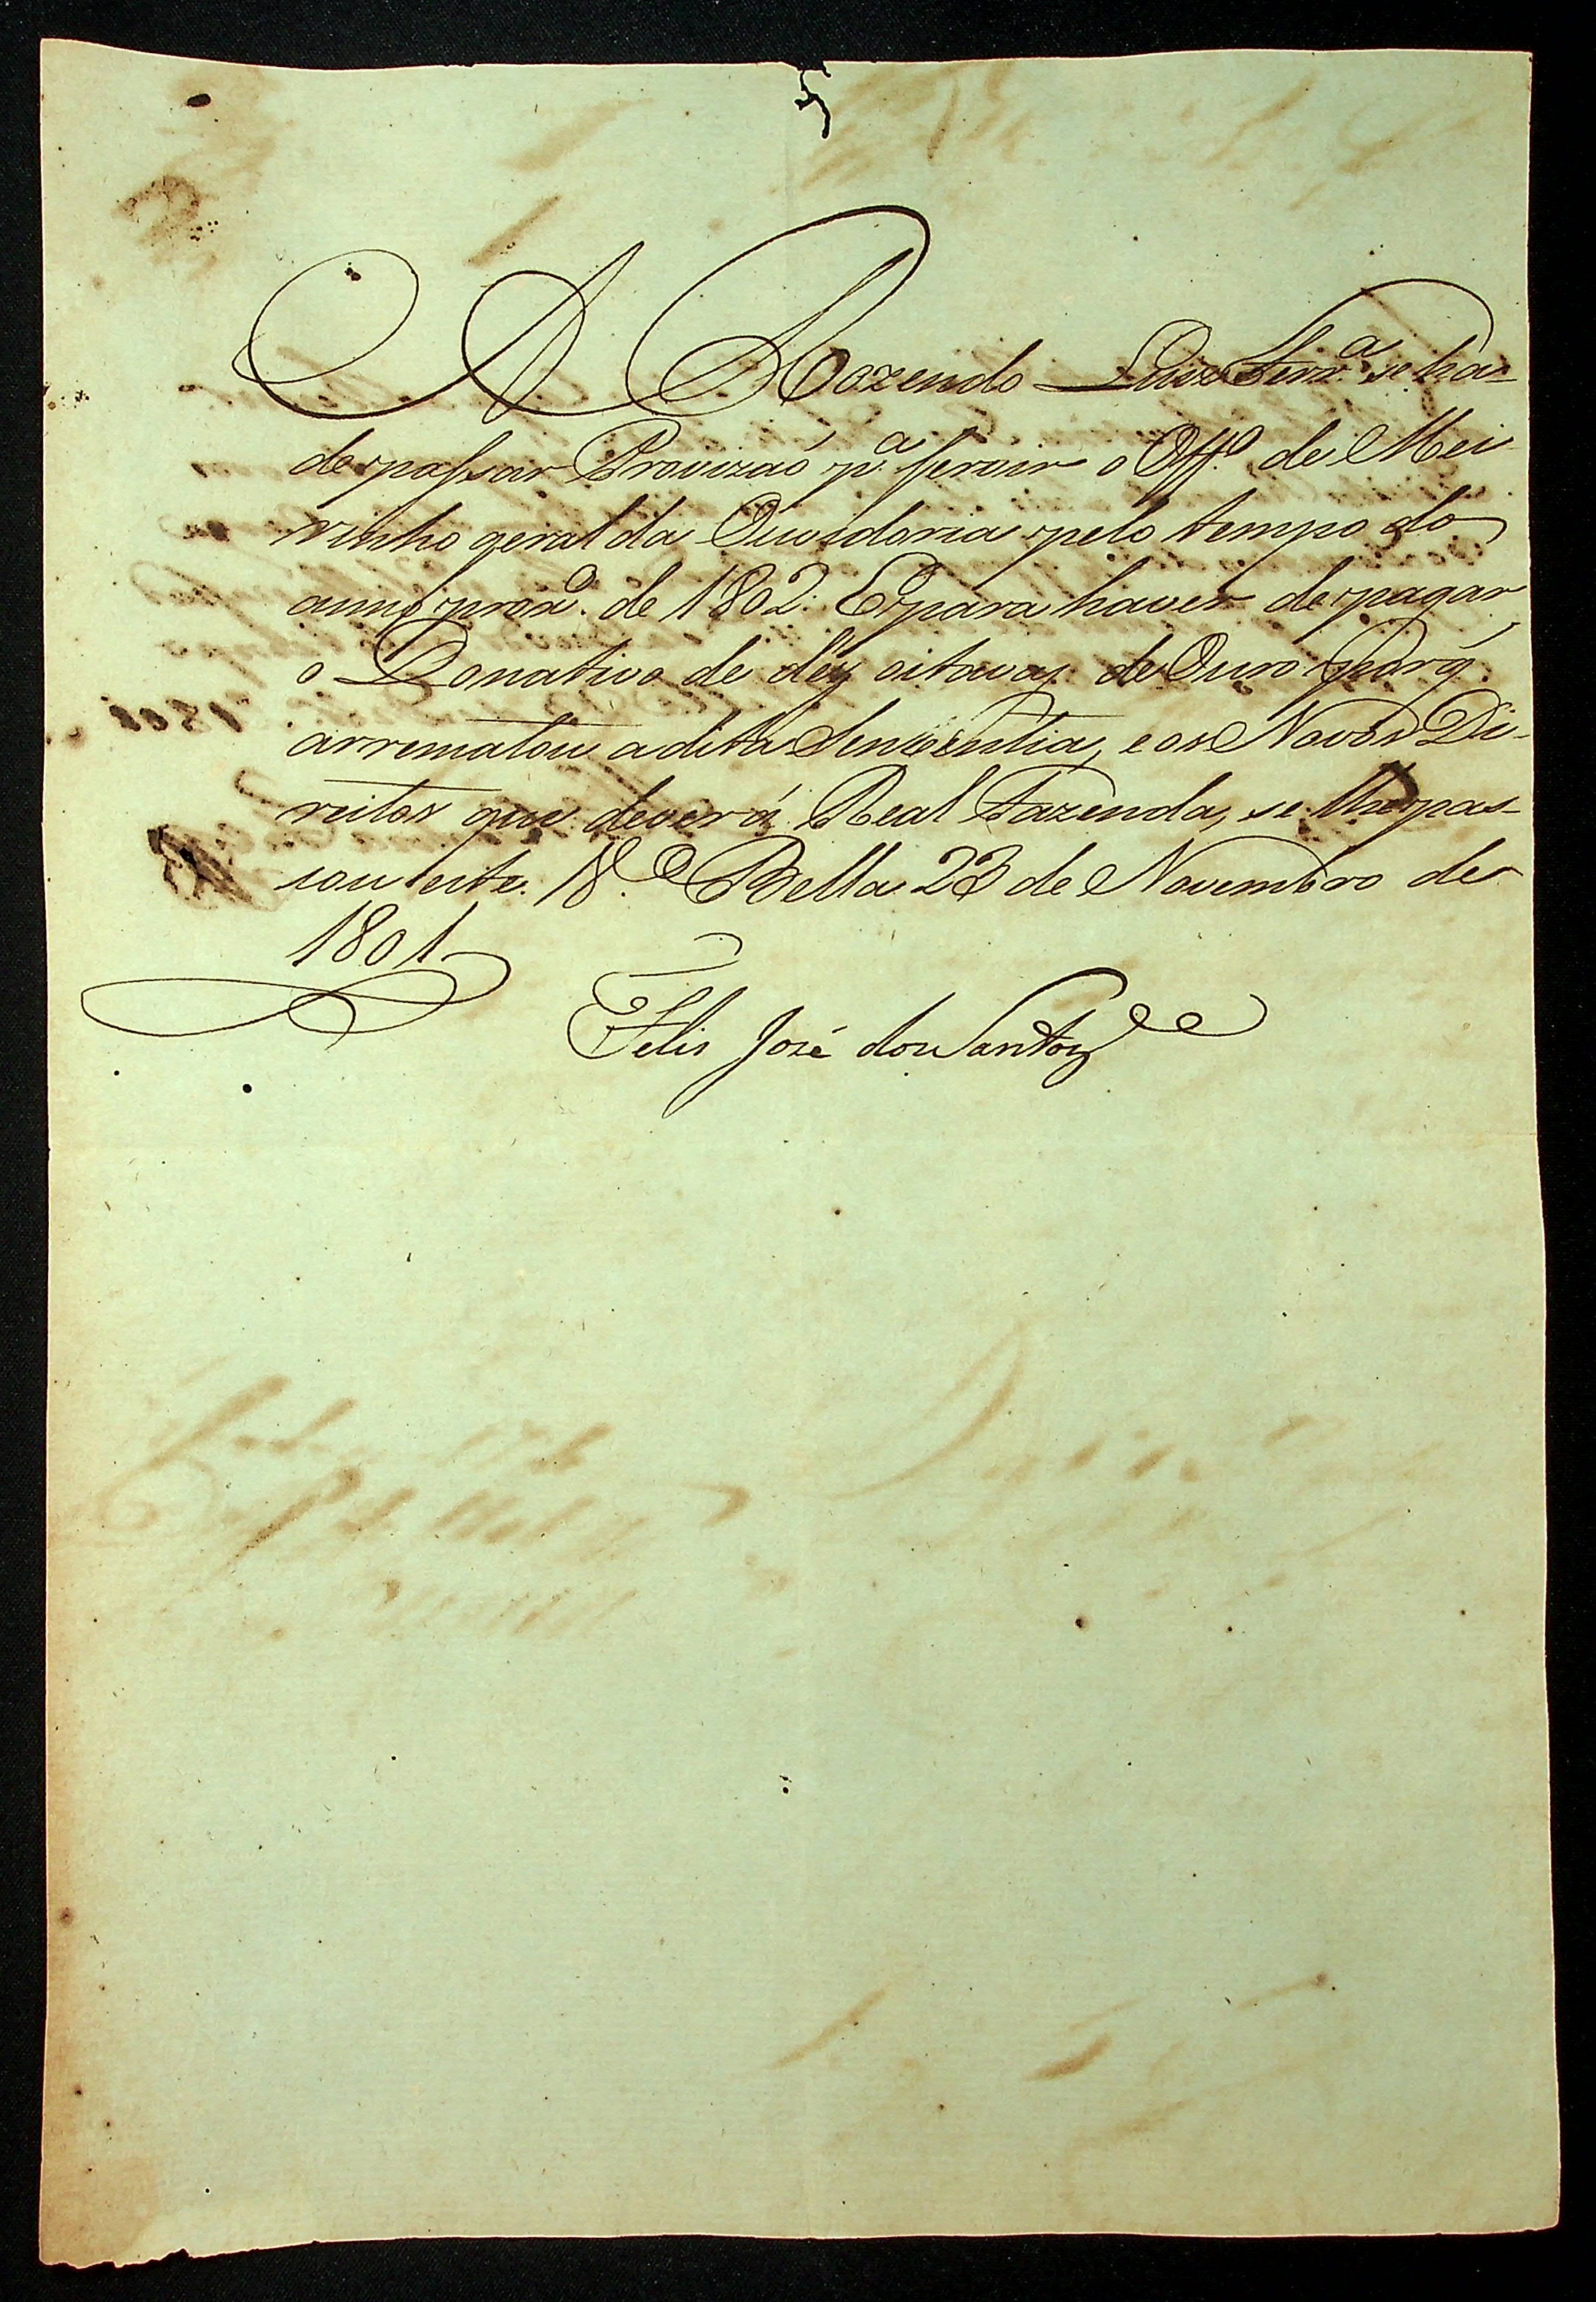 A Rozendo Luiz Ferr.ª se ha-
de passar Provizaó p.ª servir o Off.º de Mei-
rinho geral da Ouvidoria pelo tempo do
anno prox.º de 1802. E para haver de pagar
o Donativo de déz oitavas de Ouro porq̃
arrematou a dita Serventia, e os Novos Di-
reitos que dever á Real Fazenda, se lhe pas-
sou este. V.ª Bella 23 de Novembro de
1801
Felis José dos Santos